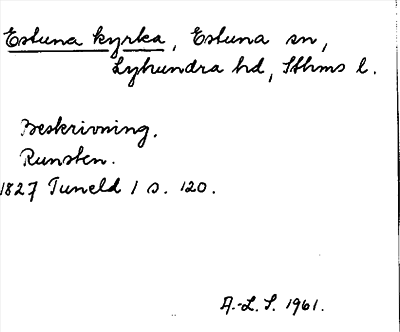 Estuna kyrka, Estuna sn,
Lyhundra hd, Sthms l.
Beskrivning.
Runsten.
1827 Tuneld 1 s. 120.
A.-L. S. 1961.